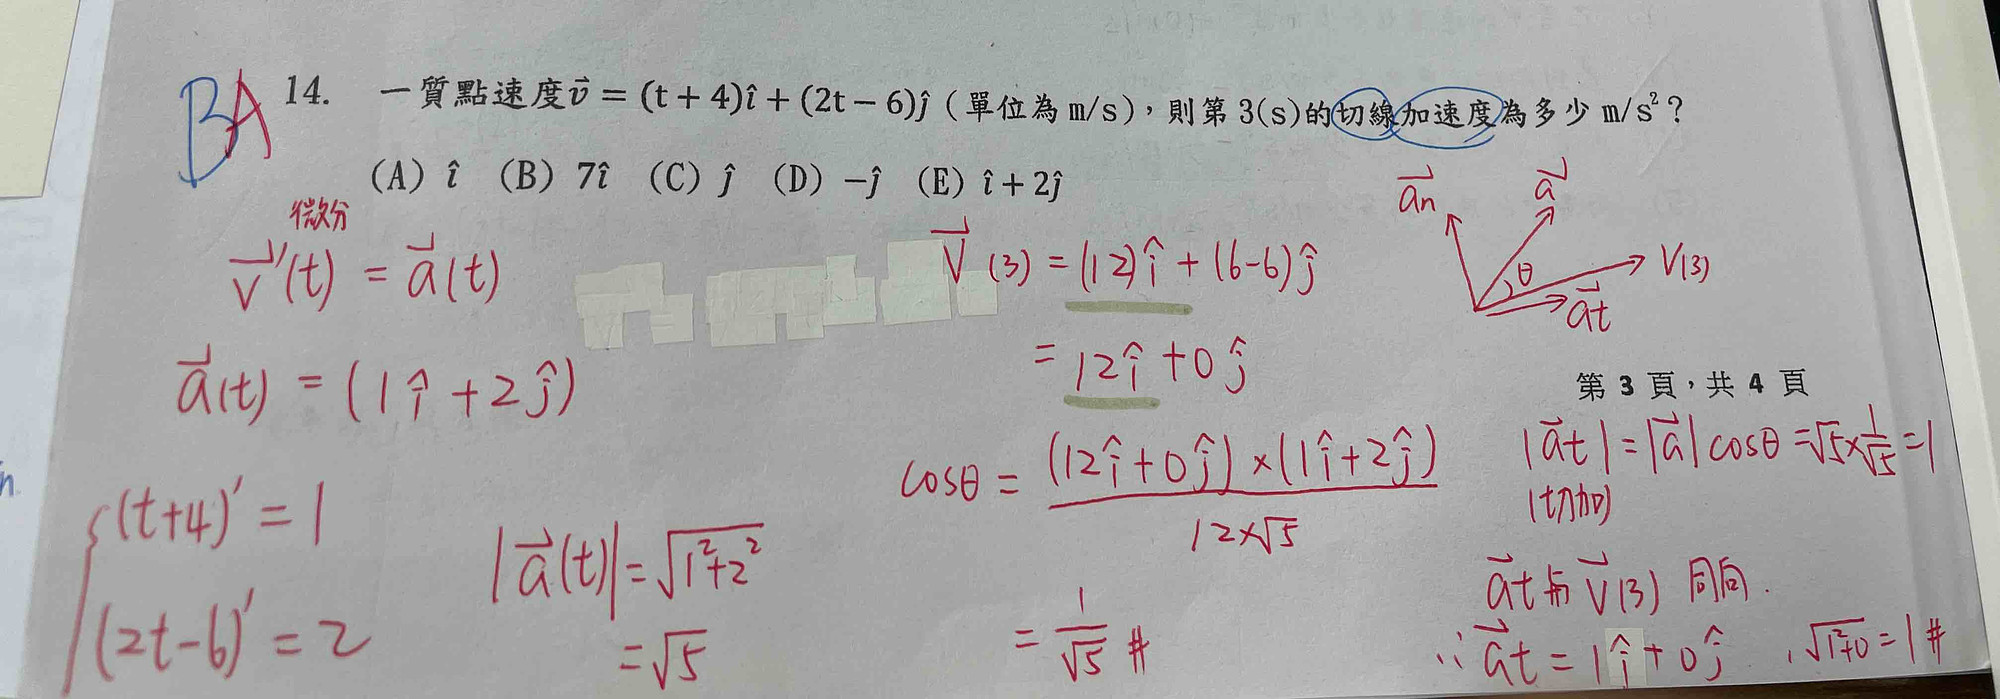 BA
14. 一質點速度v⃗ = (t + 4)î + (2t − 6)ĵ (單位為 m/s),則第 3(s)的切線加速度為多少 m/s²?
(A) î (B) 7î (C) ĵ (D) −ĵ (E) î + 2ĵ
微分
v⃗'(t) = a⃗(t)
a⃗(t) = (1î + 2ĵ)
(t+4)' = 1
(2t−6)' = 2
|a⃗(t)| = √(1²+2²)
= √5
V⃗(3) = (12)î + (6-6)ĵ
= 12î + 0ĵ
cosθ = (12î + 0ĵ) × (1î + 2ĵ) / 12×√5
= 1/√5 #
a⃗n
a⃗
θ
V(3)
a⃗t
第 3 頁,共 4 頁
|a⃗t| = |a⃗| cosθ = √5 × 1/√5 = 1
(切加)
a⃗t 與 V⃗(3) 同向.
∴ a⃗t = 1î + 0ĵ , √(1²+0) = 1 #